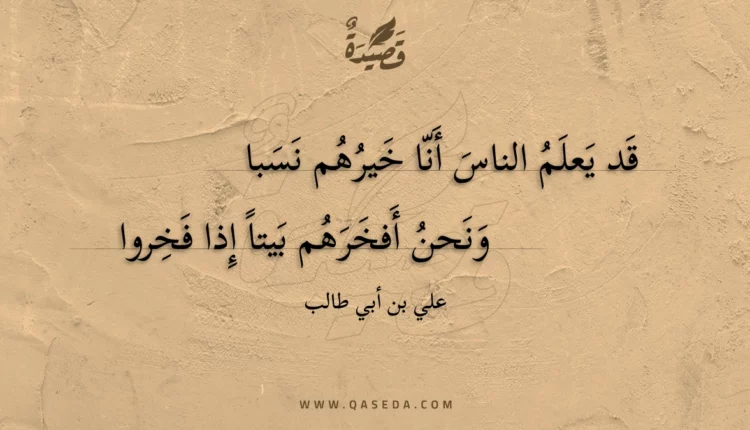 قَصيدَةٌ
قَد يَعلَمُ الناسَ أَنّا خَيرُهُم نَسَبا
وَنَحنُ أَفخَرَهُم بَيتاً إِذا فَخِروا
علي بن أبي طالب
WWW.QASEDA.COM